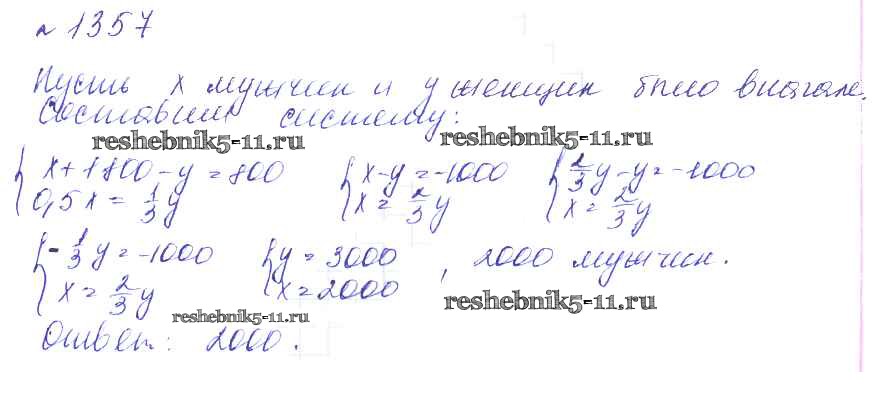 № 1357
Пусть x мужчин и y женщин было вначале.
Составим систему:
reshebnik5-11.ru reshebnik5-11.ru
{ x + 1800 - y = 800 { x - y = -1000 { 2/3 y - y = -1000
0,5x = 1/3 y x = 2/3 y x = 2/3 y
{ - 1/3 y = -1000 { y = 3000 , 2000 мужчин.
x = 2/3 y x = 2000
reshebnik5-11.ru reshebnik5-11.ru
Ответ: 2000.